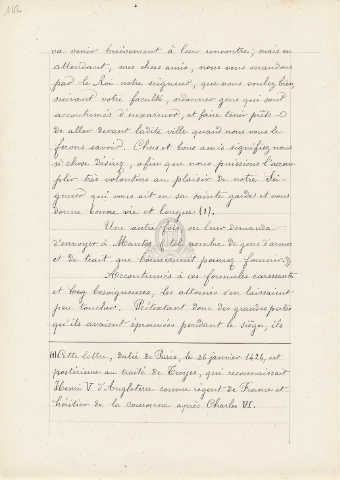 va venir brièvement à leur rencontre; mais en
attendant, mes chers amis, nous vous mandons
par le Roi notre seigneur, que vous vouliez bien
suivant votre faculté, ordonner gens qui sont
accoutumés d'eux armer, et faire tenir prêts
de aller devant ladite ville quand nous vous le
ferons savoir. Chers et bons amis signifiez nous
si chose désirez, afin que nous puissions l'accom-
plir très volontiers au plaisir de notre Sei-
gneur qui vous ait en sa sainte garde et vous
donne bonne vie et longue (1).
Une autre fois on leur demanda
d'envoyer à Mantes tel nombre de gens d'armes
et de trait que bonnement pourrez fournir.»
Accoutumés à ces formules caressantes
et trop besogneuses, les attournés s'en laissaient
peu toucher. Prétextant donc des grandes pertes
qu'ils avaient éprouvées pendant le siège, ils
(1) Cette lettre, datée de Paris, le 26 janvier 1424, est
postérieure au traité de Troyes, qui reconnaissait
Henri V d'Angleterre comme régent de France et
héritier de la couronne après Charles VI.